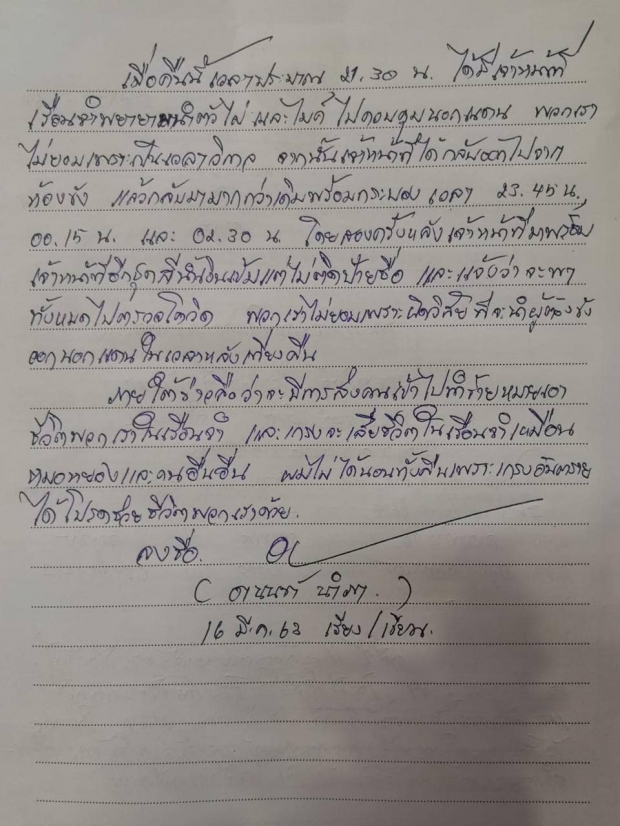 เมื่อคืนนี้ เวลาประมาณ 21.30 น. ได้มีเจ้าหน้าที่
เรือนจำพยายามนำตัวไผ่ และไมค์ ไปควบคุมนอกแดน พวกเรา
ไม่ยอมเพราะเป็นเวลาวิกาล จากนั้นเจ้าหน้าที่ได้กลับออกไปจาก
ห้องขัง แล้วกลับมามากกว่าเดิมพร้อมกระบอง เวลา 23.45 น.,
00.15 น. และ 02.30 น. โดยสองครั้งหลังเจ้าหน้าที่มาพร้อม
เจ้าหน้าที่อีกชุดสีน้ำเงินเข้มแต่ไม่ติดป้ายชื่อ และแจ้งว่าจะพา
ทั้งหมดไปตรวจโควิด พวกเราไม่ยอมเพราะผิดวิสัยที่จะนำผู้ต้องขัง
ออกนอกแดนในเวลาหลังเที่ยงคืน
ภายใต้ข่าวลือว่าจะมีการส่งคนเข้าไปทำร้ายหมายเอา
ชีวิตพวกเราในเรือนจำ และเกรงจะเสียชีวิตในเรือนจำเหมือน
หมอหยองและคนอื่นอื่น ผมไม่ได้นอนทั้งคืนเพราะเกรงอันตราย
ได้โปรดช่วยชีวิตพวกเราด้วย.
ลงชื่อ.
( อานนท์ นำภา. )
16 มี.ค. เขียน/เรียน.